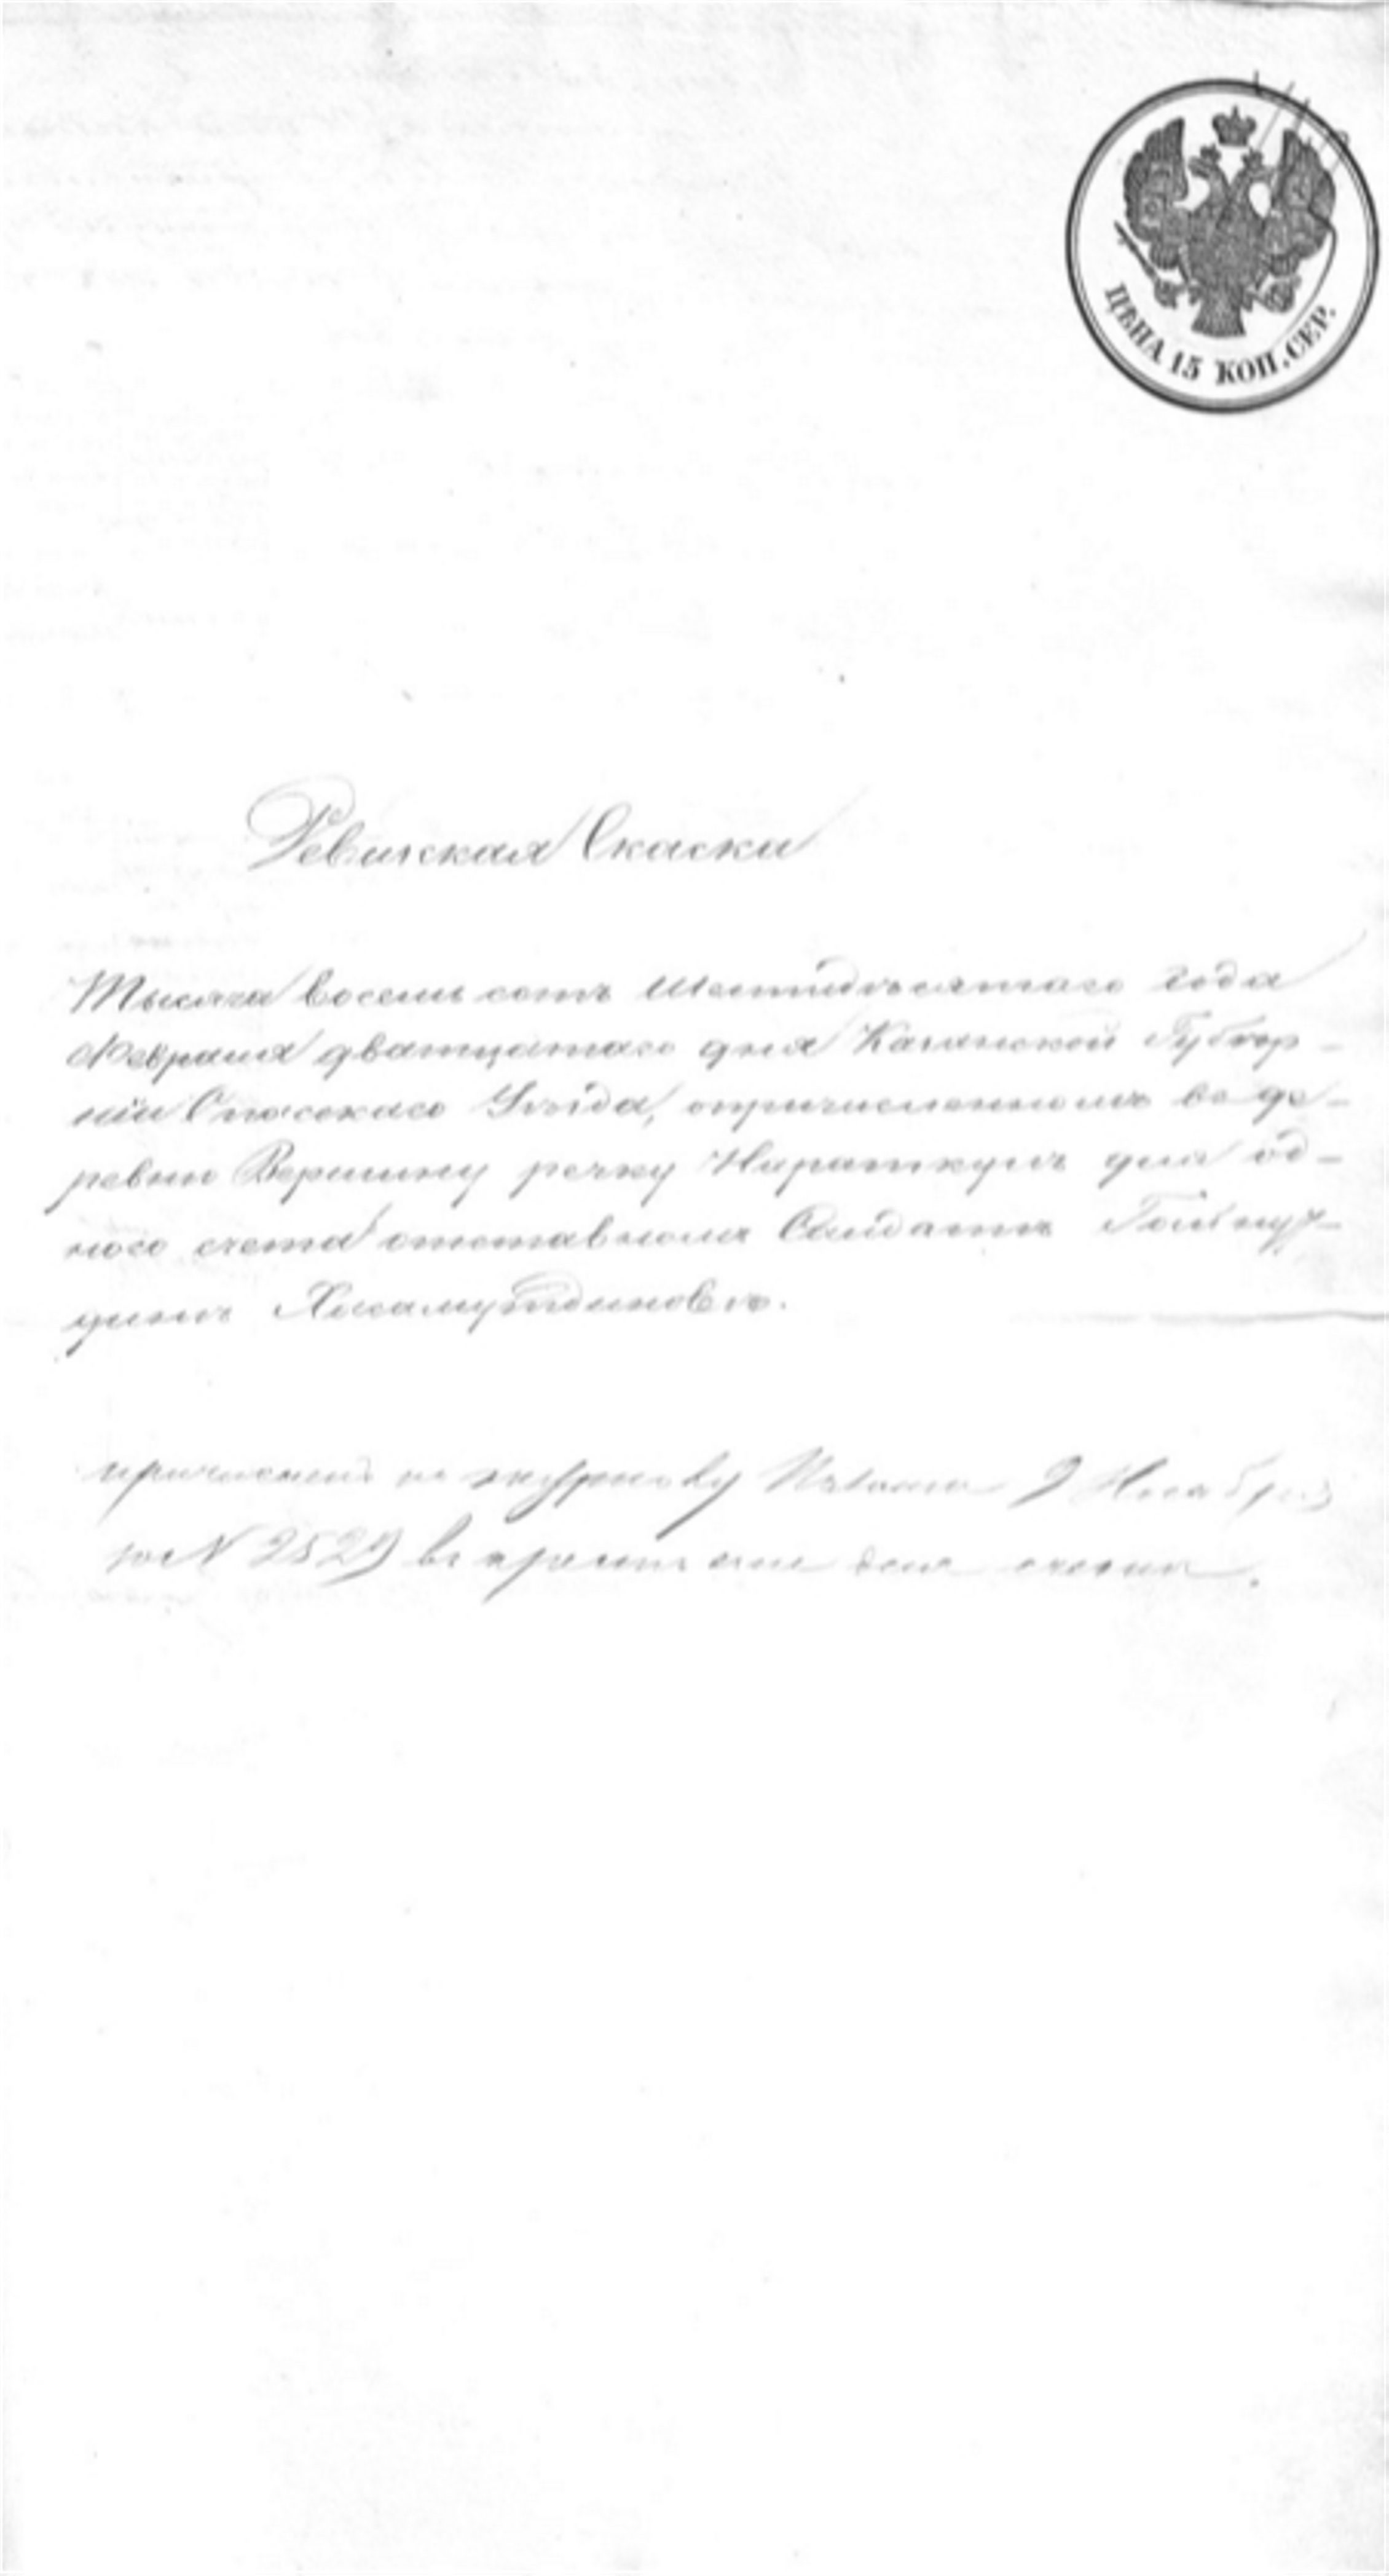 ЦѢНА 15 КОП. СЕР.
Ревижская Скаски
Тысяча восемь сотъ шестидѣсятаго года
Февраля дватцатаго дня Казанской Губѣр-
нiи Спаскаго Уѣзда, опричисленномъ въ де-
ревню Вершину речку Нараткулъ для од-
ного счета отставномъ Салдатѣ Гайнут-
динѣ Хисамутдиновѣ.
причислен по журналу Палаты 9 Ноября
за N 2529 в для счета.